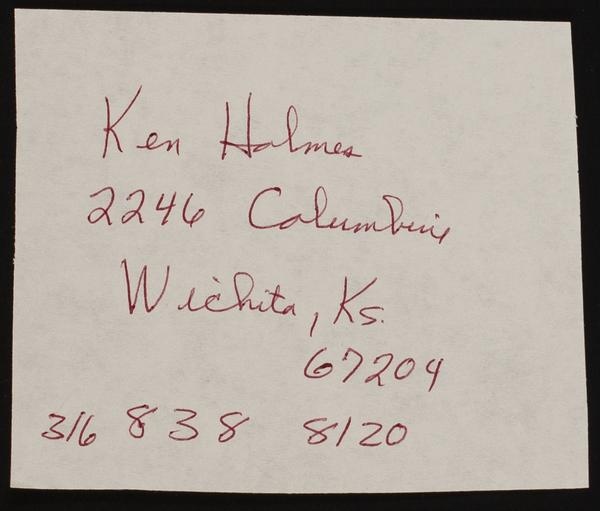 Ken Holmes
2246 Columbine
Wichita, Ks.
67204
316 838 8120